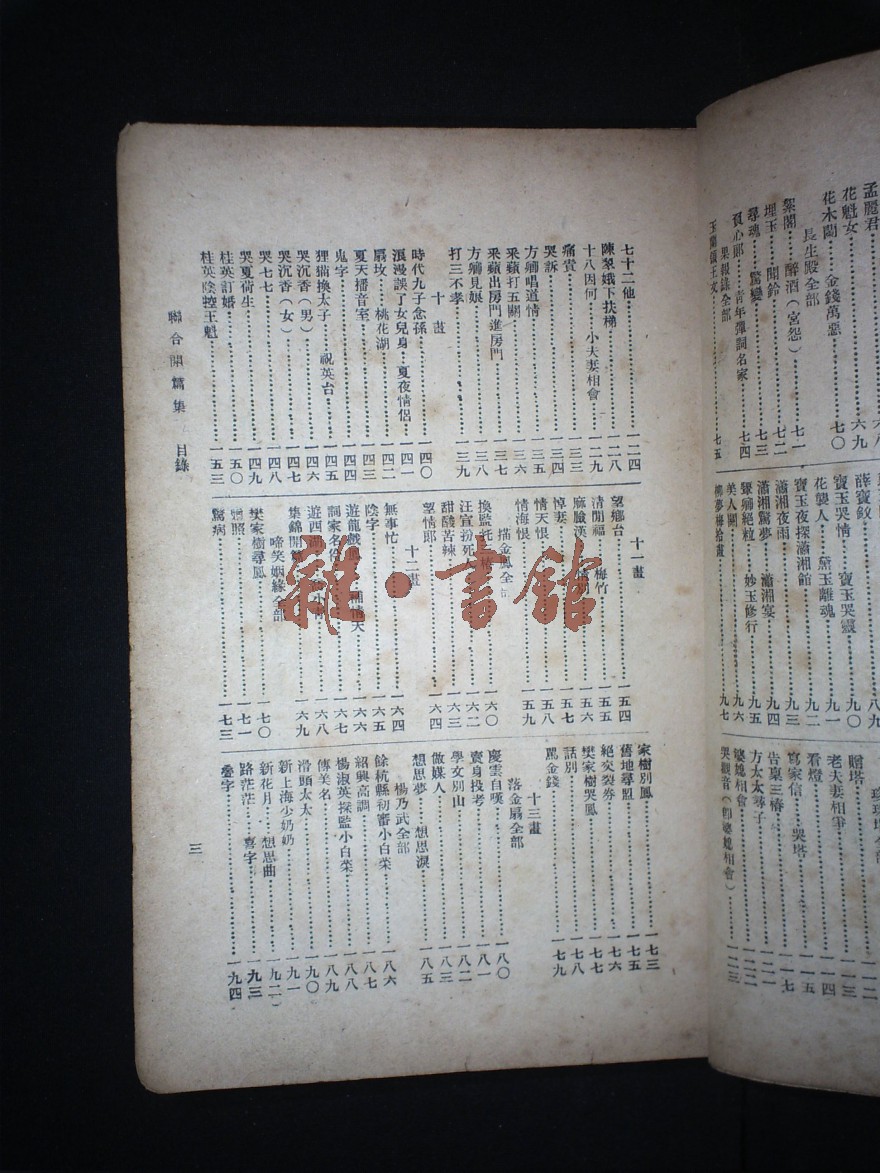 孟麗君
花魁女
六九
花木蘭 金錢萬惡
七〇
長生殿全部
絮閣 醉酒（宮怨）
七一
埋玉 聞鈴
七二
尋魂 驚變
七三
青年彈詞名家
七四
果報錄全部
七五
薛寶釵
八九
寶玉哭情 寶玉哭靈
九〇
花襲人 黛玉離魂
九一
九二
寶玉夜探瀟湘館
九三
瀟湘夜雨
瀟湘驚夢 瀟湘宴
九四
九五
妙玉修行
美人關
九六
柳夢梅拾畫
九七
贈塔
一一二
老夫妻相爭
一一三
看燈
一一四
寫家信 哭塔
一一五
一一七
方太太尋子
婆媳相會
哭觀音（卽婆媳相會）
一二三
七十二他 一二四
陳翠娥下扶梯 一二八
十八因何 小夫妻相會 一二九
痛責 一三三
哭訴 一三四
方卿唱道情 一三五
釆蘋打五關 一三六
釆蘋出房門進房門 一三七
方卿見娘 一三八
打三不孝 一三九
十畫
時代九子念孫 一四〇
浪漫誤了女兒身 夏夜情侶 一四一
扇坟 桃花湖 一四二
夏天播音室 一四三
鬼字 一四四
狸貓換太子 祝英台 一四四
哭沉香（男） 一四六
哭沉香（女） 一四七
哭七七 一四九
哭夏荷生 一四九
桂英訂婚 一五〇
桂英陰控王魁 一五三
十一畫
望鄉台 一五四
清閒福 梅竹 一五五
麻臉漢 一五六
悼妻 一五七
情天恨 一五八
情海恨 一五九
描金鳳全
換監 一六〇
汪宣扮死人 一六二
甜酸苦辣 一六三
望情郎 一六四
十二畫
無事忙 一六四
陰字 一六五
遊龍戲鳳 一六六
詞家名 一六七
遊西湖 一六八
集錦開篇 一六九
啼笑姻緣全部
樊家樹尋鳳 一七〇
贈照 一七一
驚病 一七三
家樹別鳳 一七三
舊地尋盟 一七五
絕交裂券 一七六
樊家樹哭鳳 一七七
話別 一七八
罵金錢 一七九
十三畫
落金扇全部
慶雲自嘆 一八〇
賣身投考 一八一
學女別山 一八二
做媒人 一八三
想思夢 想思淚 一八五
楊乃武全部
餘杭縣初審小白菜 一八六
紹興高調 一八七
楊淑英探監小白菜 一八八
傳美名 一八九
滑頭太太 一九〇
新上海少奶奶 一九一
新花月 想思曲 一九二
路茫茫 喜字 一九三
疊字 一九四
聯合開篇集 目錄
三
雜·書館